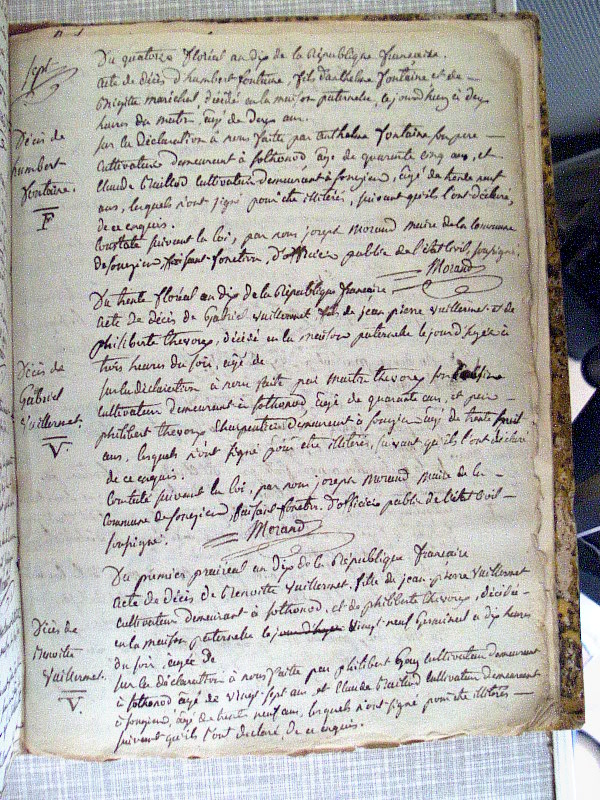 sept
Du quatorze floréal an dix de la République française.
acte de décès d'humbert fontaine, fils d'anthelme fontaine et de
Brigitte maréchal, décédé en la maison paternelle, le jourd'huy à deux
heures du matin, âgé de deux ans.
sur la déclaration à nous faite par anthelme fontaine son pere
cultivateur demeurant à sothonod âgé de quarante cinq ans, et
Claude Cuillod cultivateur demeurant à songieu, âgé de trente neuf
ans, lesquels n'ont signé pour être illitérés, suivant qu'ils l'ont déclaré,
de ce enquis.
Constaté suivant la loi, par nous joseph Morand maire de la commune
de songieu faisant fonction d'officier public de l'état Civil, soussigné.
Morand
Décès de
humbert
fontaine.
F
Du trente floréal an dix de la République française
acte de décès de Gabriel Vuillermet fils de jean pierre Vuillermet et de
philiberte thevoney, décédé en la maison paternelle le jourd'huy à
trois heures du soir, âgé de
sur la déclaration à nous faite par maître thevoney son
cultivateur demeurant à sothonod âgé de quarante ans, et par
philibert thevoney charpentier demeurant à songieu âgé de trente huit
ans, lesquels n'ont signé pour être illitérés, suivant qu'ils l'ont déclaré
de ce enquis.
Constaté suivant la loi, par nous joseph Morand maire de la
Commune de songieu faisant fonction d'officier public de l'état Civil
soussigné.
Morand
Décès de
Gabriel
Vuillermet.
V.
Du premier prairial an dix de la République française
acte de décès de Benoite Vuillermet fille de jean pierre Vuillermet
cultivateur demeurant à sothonod, et de philiberte thevoney, décédée
en la maison paternelle le jourd'huy vingt neuf Germinal à dix heures
du soir, âgée de
sur la déclaration à nous faite par philibert Guy cultivateur demeurant
à sothonod âgé de vingt sept ans, et Claude Cuillod cultivateur demeurant
à songieu, âgé de trente neuf ans, lesquels n'ont signé pour être illitérés
suivant qu'ils l'ont déclaré, de ce enquis.
Décès de
Benoite
Vuillermet.
V.